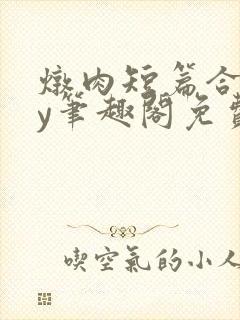 燉肉短篇合
y筆趣閣免費
喫空氣的小人